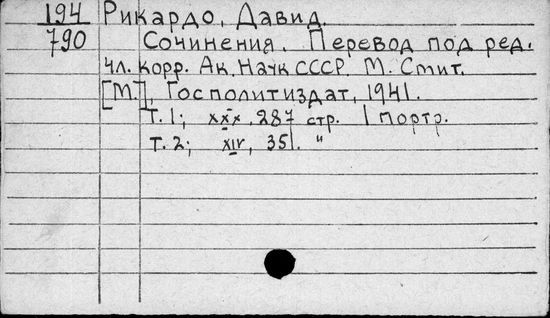 194 Рикардо, Давид.
790 Сочинения. Перевод под ред.
чл. корр. Ак. Наук СССР. М. Смит.
[М.], Госполитиздат, 1941.
Т. 1; xxx, 287 стр. 1 портр.
Т. 2; xiv, 351. "